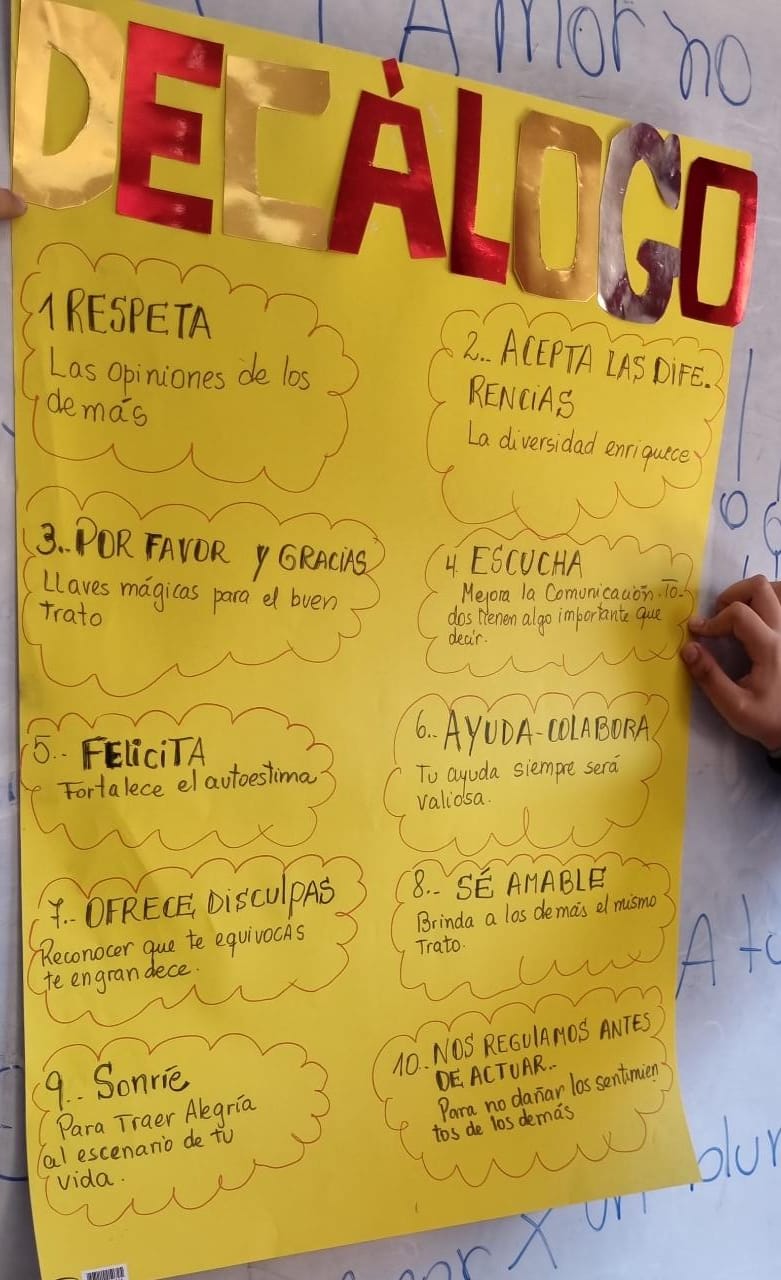 Amor no
DECÀLOGO
1 RESPETA
Las opiniones de los
demás
2.. ACEPTA LAS DIFE.
RENCIAS
La diversidad enriquece
3.. POR FAVOR Y GRACIAS
LLaves mágicas para el buen
trato
4 ESCUCHA
Mejora la Comunicación. To-
dos tienen algo importante que
decir.
5.. FELICITA
Fortalece el autoestima
6.. AYUDA-COLABORA
Tu ayuda siempre será
valiosa.
7.. OFRECE DISCULPAS
Reconocer que te equivocas
te engrandece.
8.. SÉ AMABLE
Brinda a los demás el mismo
Trato.
9.. Sonríe
Para Traer Alegría
al escenario de tu
vida.
10.. NOS REGULAMOS ANTES
DE ACTUAR..
Para no dañar los sentimien
tos de los demás